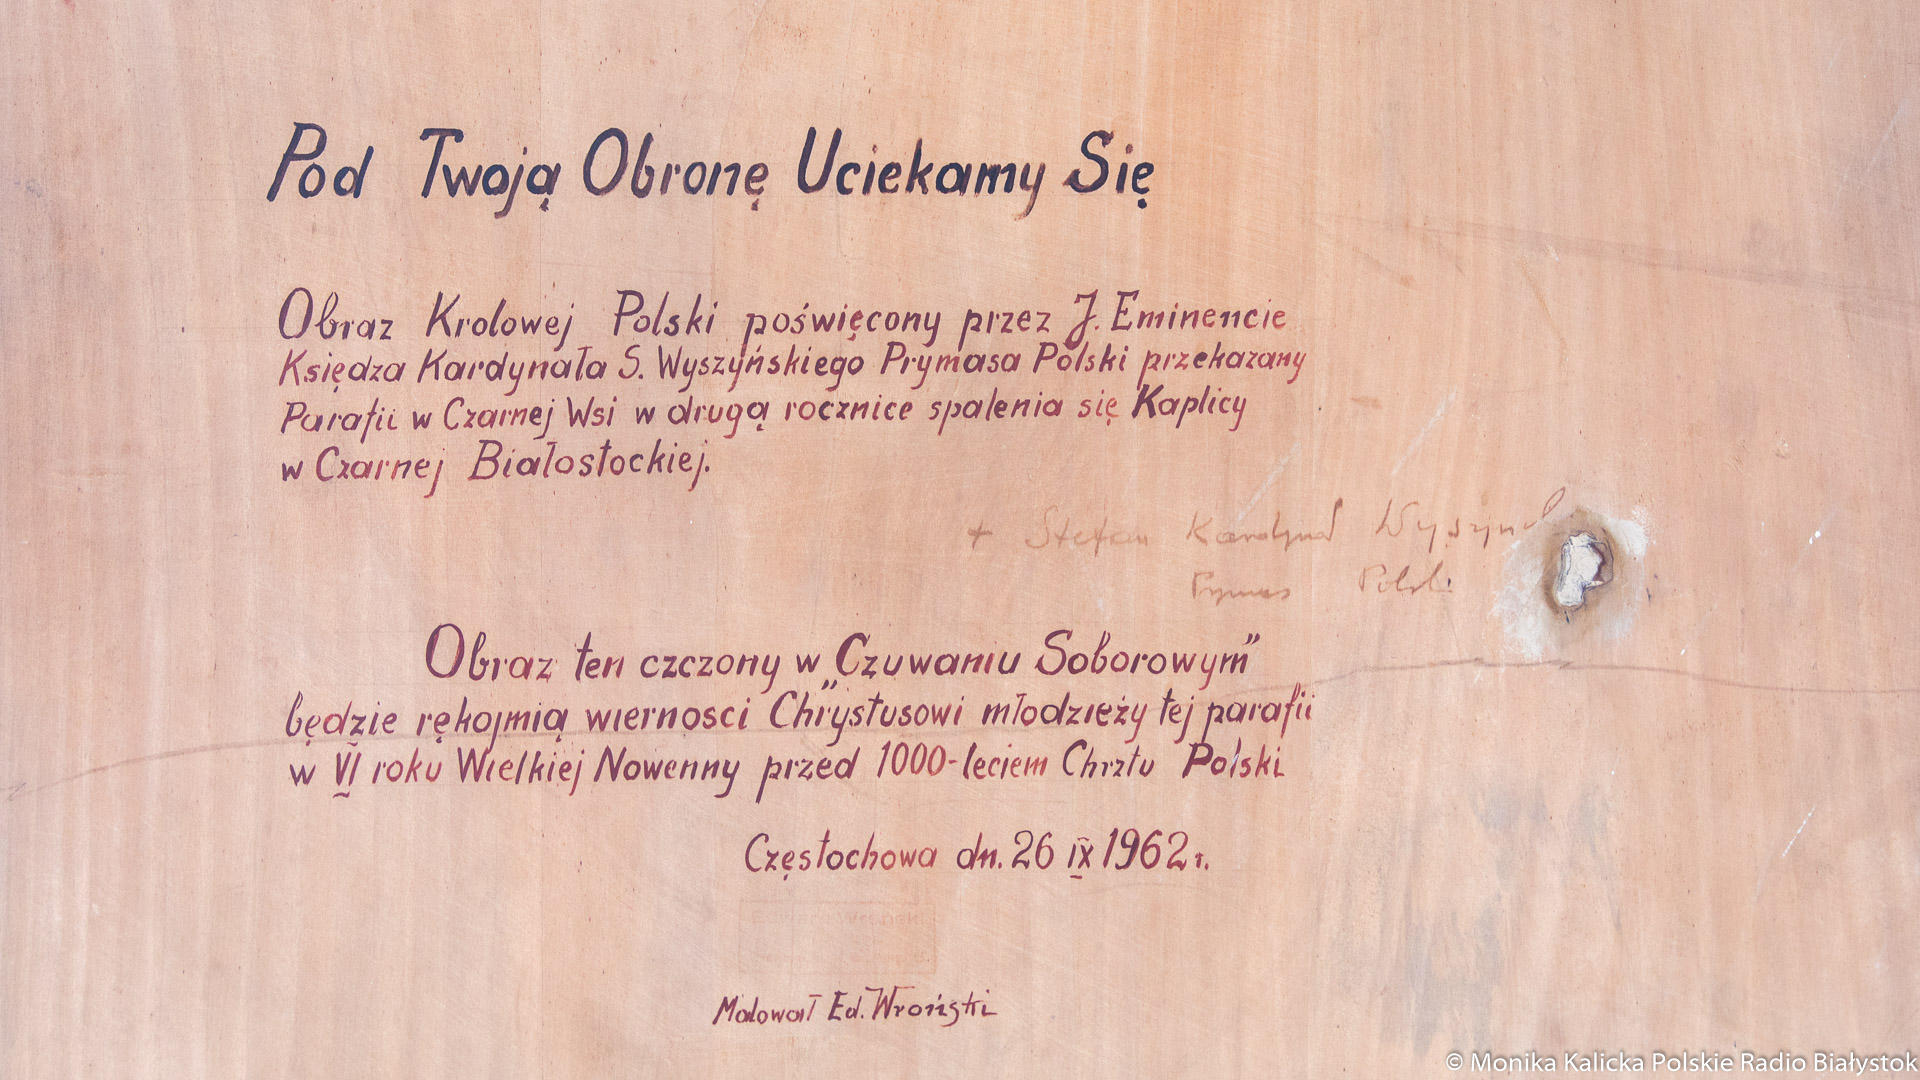 Pod Twoją Obronę Uciekamy Się
Obraz Krolowej Polski poświęcony przez J. Eminencie
Księdza Kardynała S. Wyszyńskiego Prymasa Polski przekazany
Parafii w Czarnej Wsi w drugą rocznice spalenia się Kaplicy
w Czarnej Białostockiej.
+ Stefan Kardynał
Prymas Polski
Obraz ten czczony w „Czuwaniu Soborowym"
będzie rękojmią wiernosci Chrystusowi młodzieży tej parafii
w VI roku Wielkiej Nowenny przed 1000-leciem Chrztu Polski
Częstochowa dn. 26 IX 1962 r.
Malował Ed. Wroński
© Monika Kalicka Polskie Radio Białystok